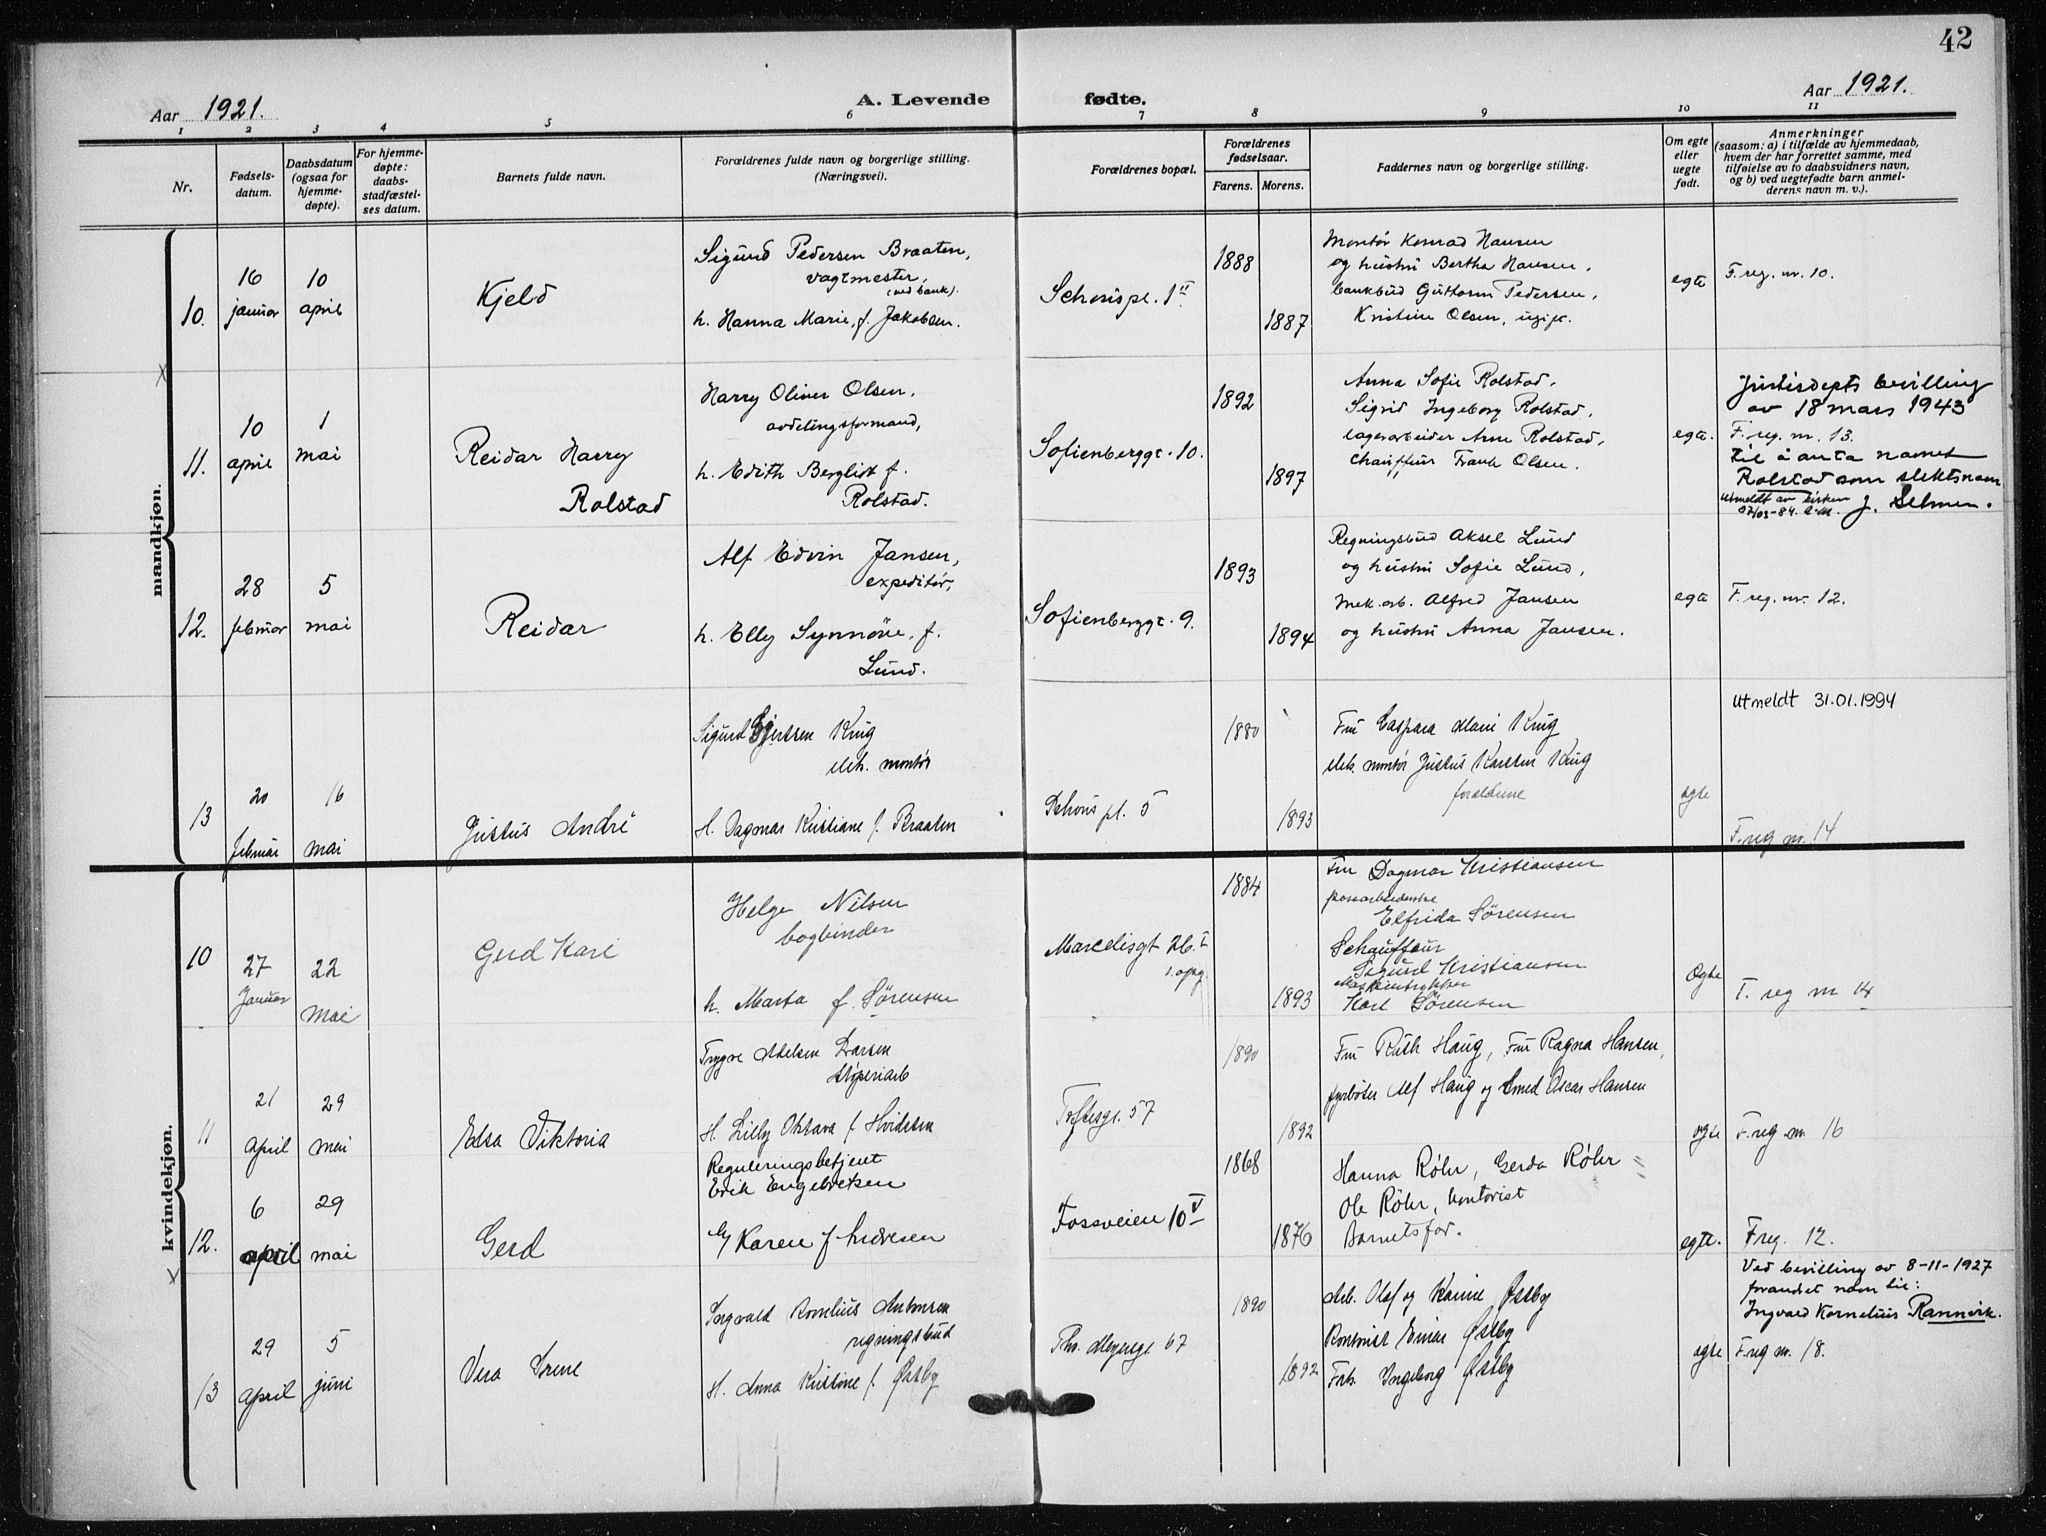 42
Aar 1921.
A. Levende fødte.
Aar 1921.
1 2 3 4 5 6 7 8 9 10 11
Nr.
Fødsels-
datum.
Daabsdatum
(ogsaa for
hjemme-
døpte).
For hjemme-
døpte:
daabs-
stadfæstel-
ses datum.
Barnets fulde navn.
Forældrenes fulde navn og borgerlige stilling.
(Næringsvei).
Forældrenes bopæl.
Forældrenes
fødselsaar.
Farens. Morens.
Faddernes navn og borgerlige stilling.
Om egte
eller
uegte
født.
Anmerkninger
(saasom: a) i tilfælde av hjemmedaab,
hvem der har forrettet samme, med
tilføielse av to daabsvidners navn,
og b) ved uegtefødte barn anmel-
derens navn m. v.).
mandkjøn.
10.
16
januar
10
april
Kjeld
Sigurd Pedersen Braaten,
vagtmester,
(ved bank).
h. Hanna Marie, f. Jakobsen.
Schouspl. 1 II
1888
1887
Montør Konrad Hansen
og hustru Bertha Hansen,
bankbud Guttorm Pedersen,
Kristine Olsen, ugift.
egte
F. reg. nr. 10.
11.
10
april
1
mai
Reidar Harry
Rolstad
Harry Oliver Olsen,
avdelingsformand,
h. Edith Bergliot f.
Rolstad.
Sofienberggt. 10.
1892
1897
Anna Sofie Rolstad,
Sigrid Ingeborg Rolstad,
lagerarbeider Arne Rolstad,
Chauffeur Frank Olsen.
egte.
Justisdepts bevilling
av 18 mars 1943
F. reg. nr. 13.
til å anta namet
Rolstad som slektsnam
Utmeldt av kirken
07/03-84. J. Selmer.
12.
28
februar
5
mai
Reidar
Alf Edvin Jansen,
expeditør,
h. Elly Synnøve, f.
Lund.
Sofienberggt. 9.
1893
1894
Regningsbud Aksel Lund
og hustru Sofie Lund,
Mek. arb. Alfred Jansen
og hustru Anna Jansen.
egte
F. reg. nr. 12.
13
20
februar
16
mai
Justus André
Sigurd Krug
elek. montør
H. Dagmar Kristiane f. Braaten
Schous pl. 5
1880
1893
Fru Caspara Marie Krug
elek. montør Justus Karsten Krug
forældrene
egte
Utmeldt 31.01.1994
F. reg nr. 14
kvindekjøn.
10
27
Januar
22
Mai
Gerd Kari
Helge Nilsen
bogbinder
h. Marta f. Sørensen
Marcelisgt 26. I
1. opg.
1884
1893
Fru Dagmar Kristiansen
Elfrida Sørensen
Schauffeur
Sigurd Kristiansen
Karl Sørensen
Egte
F. reg nr 14
11
21
April
29
mai
Elsa Viktoria
Trygve Adelsen Larsen
støperiarb
H. Lilly Oktava f. Hvidsten
Toftesgt. 57
1890
1892
Fru Ruth Haug, Fru Ragna Hansen,
fyrbøter Alf Haug og Oscar Hansen
egte
F. reg nr. 16
12.
6
april
29
mai
Gerd
Reguleringsbetjent
Erik Engebretsen
og Karen f Andresen
Fossveien 10 V
1868
1876
Hanna Røhr, Gerda Røhr
Ole Røhr, kontorist
Barnets far.
egte.
F reg. 12.
13
29
april
5
juni
Vera Irene
Ingvald Kornelius Antonsen
regningsbud
H. Anna Kristine f. Østby
Ths. Meyersgt. 67
1890
1892
Arb. Olaf og Karine Østby
Kontorist Einar Østby
Frk. Ingeborg Østby
egte
Ved bevilling av 8-11-1927
forandret navn til:
Ingvald Kornelius Rannvik.
F. reg nr. 18.